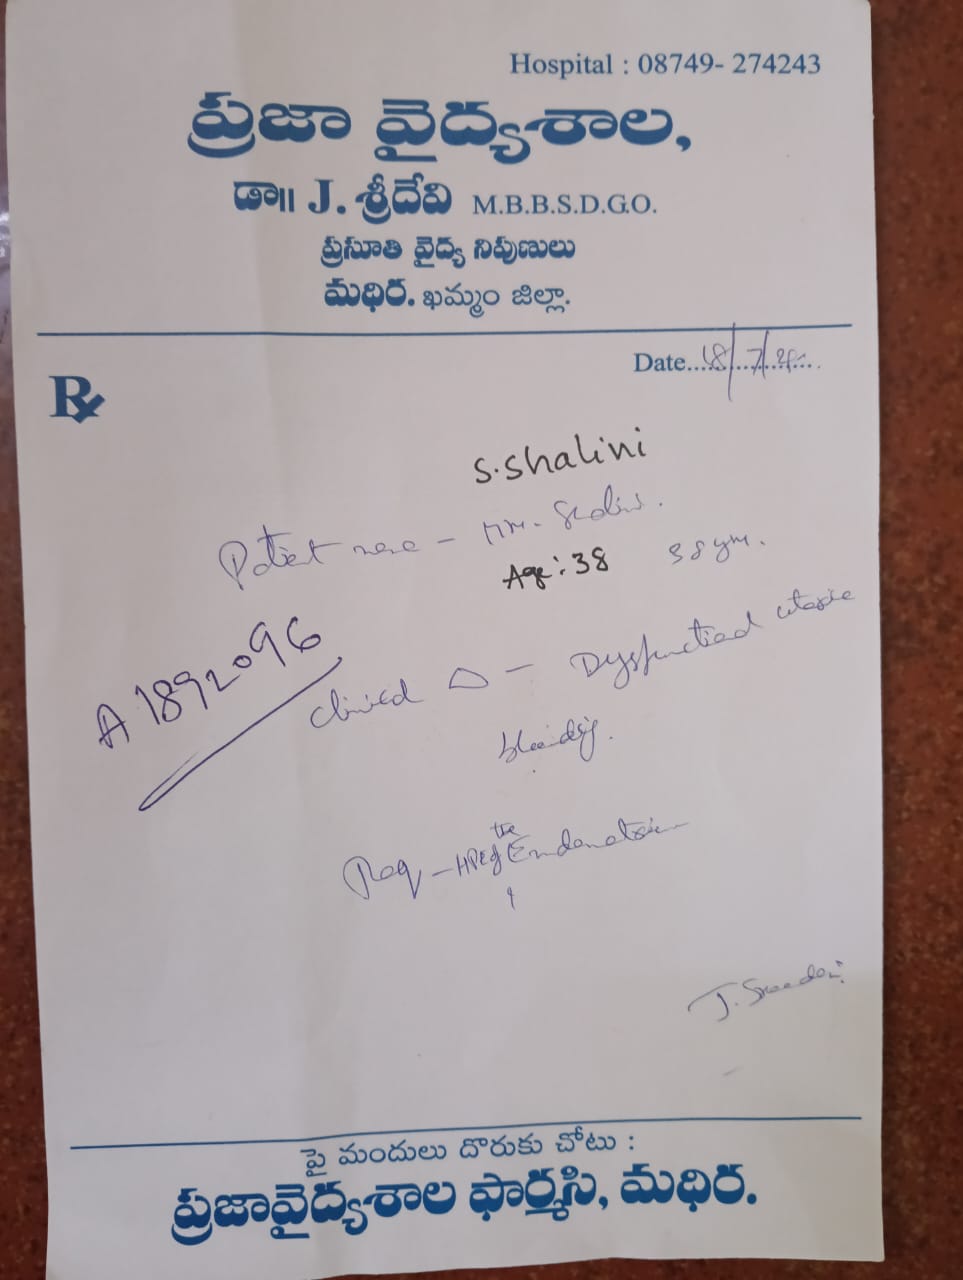 Hospital : 08749- 274243
ప్రజా వైద్యశాల,
డా॥ J. శ్రీదేవి M.B.B.S.D.G.O.
ప్రసూతి వైద్య నిపుణులు
మధిర. ఖమ్మం జిల్లా.
Date.... 18/7/
Rx
S. Shalini
Patient name -
Age: 38 38 yrs.
A1892096
Clinical Δ - Dysfunctional uterine
bleeding.
Req - HPE of the
J. Sreedevi
పై మందులు దొరుకు చోటు :
ప్రజావైద్యశాల ఫార్మసి, మధిర.